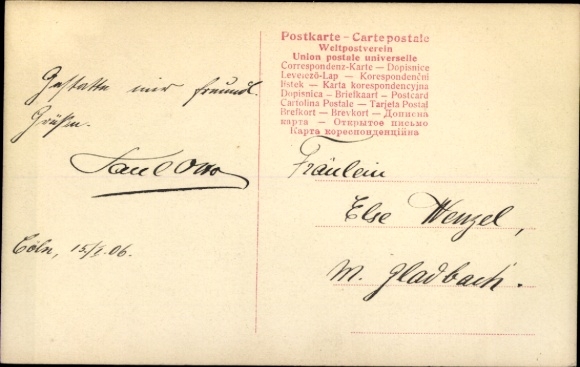 Postkarte – Carte postale
Weltpostverein
Union postale universelle
Correspondenz-Karte – Dopisnice
Levelező-Lap – Korespondenční
lístek – Karta korespondencyjna
Dopisnica – Briefkaart – Postcard
Cartolina Postale – Tarjeta Postal
Brefkort – Brevkort – Дописна
карта – Открытое письмо
Карта кореспонденційна
Gestatte mir freundl.
Grüßen.
Paul Otto
Cöln, 15/I. 06.
Fräulein
Else Wenzel,
M. Gladbach.